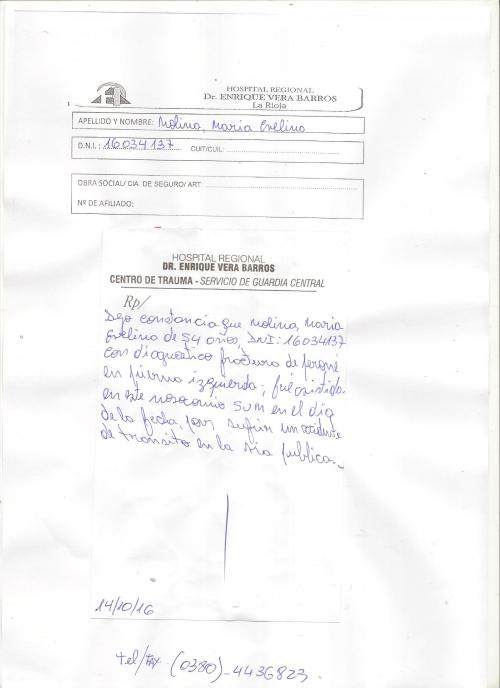 HOSPITAL REGIONAL
Dr. ENRIQUE VERA BARROS
La Rioja
APELLIDO Y NOMBRE: Molina, Maria Evelina
D.N.I.: 16034137 CUIT/CUIL:
OBRA SOCIAL/ CIA. DE SEGURO/ ART:
Nº DE AFILIADO:
HOSPITAL REGIONAL
DR. ENRIQUE VERA BARROS
CENTRO DE TRAUMA - SERVICIO DE GUARDIA CENTRAL
Rp/
Dejo constancia que Molina, Maria
Evelina de 54 años, DNI: 16034137
con diagnostico fractura de peroné
en pierna izquierda; fué asistida
en este nosocomio SUM en el dia
de la fecha, por sufrir un accidente
de transito en la via publica.-
14/10/16
tel/FAX (0380)-4436823